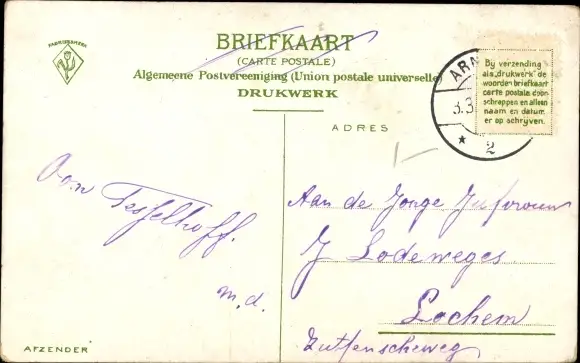 FABRIEKSMERK
BRIEFKAART
(CARTE POSTALE)
Algemeene Postvereeniging (Union postale universelle)
DRUKWERK
ARN
3.3
2
By verzending
als „drukwerk" de
woorden briefkaart
carte postale door-
schrappen en alleen
naam en datum
er op schrijven.
ADRES
Von Tesselhoff.
m.d.
Aan de Jonge Jufvrouw
J Lodeweges.
Lochem
Zutfenscheweg
AFZENDER